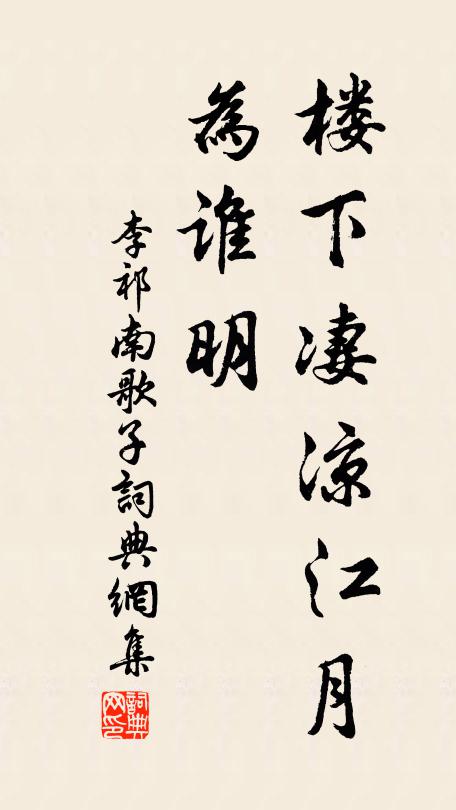 楼下凄凉江月
為誰明
李祁南歌子詞典網集
詞典網印